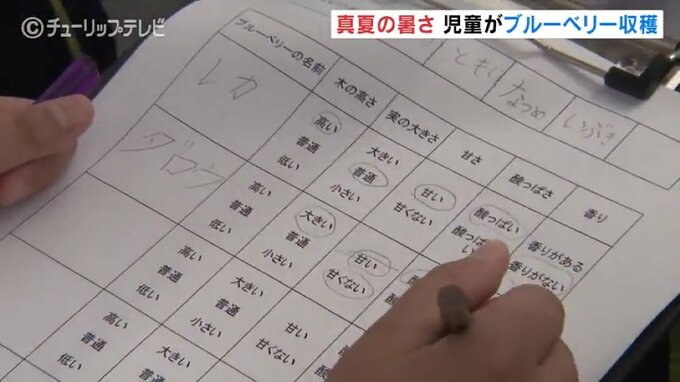 ©チューリップテレビ
真夏の暑さ 児童がブルーベリー収穫
ときり なつめ いぶき
ブルーベリーの名前 木の高さ 実の大きさ 甘さ 酸っぱさ 香り
レカ 高い 普通 低い 大きい 普通 小さい 甘い 甘くない 酸っぱい 酸っぱ 香りがある 香りがない
ダロウ 高い 普通 低い 大きい 普通 小さい 甘い 甘くない
高い 普通 低い 大きい 普通 小さい 甘い 甘くない
高い 普通 低い 大きい 普通 甘い 甘くない